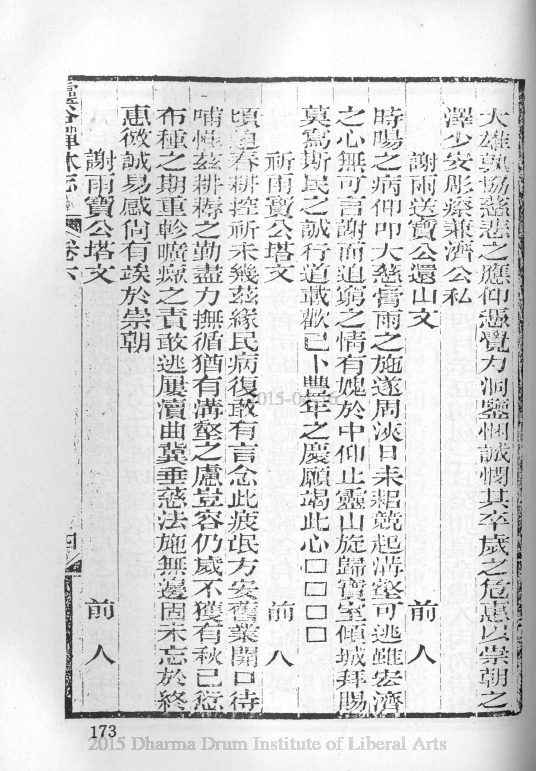 大雄孰協慈悲之應仰憑覺力洞鑒悃誠憫其卒歲之危惠以崇朝之
澤少安彫瘵兼濟公私
謝雨送寶公還山文 前人
時暘之病仰叩大慈膏雨之施遂周浹日耒耜競起溝壑可逃雖宏濟
之心無可言謝而迫窮之情有媿於中仰止靈山旋歸寶室傾城拜賜
莫寫斯民之誠行道載歡已卜豐年之慶願竭此心□□□□
祈雨寶公塔文 前人
頃迫春耕控祈未幾茲緣民病復敢有言念此疲氓方安舊業開口待
哺惟茲耕耨之勤盡力撫循猶有溝壑之慮豈容仍歲不獲有秋已愆
布種之期重軫曠瘝之責敢逃屢瀆曲冀垂慈法施無邊固未忘於終
惠微誠易感尚有竢於崇朝
謝雨寶公塔文 前人
靈谷禪林志 卷六 四
2015-0
173
2015 Dharma Drum Institute of Liberal Arts